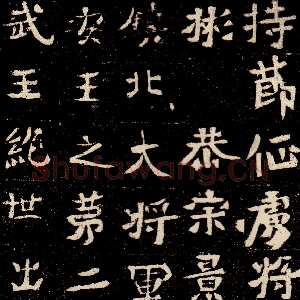 持節征虜將
彬恭宗景
鎮北大將軍
安王之第二
武王絕世出
shufawang.cn